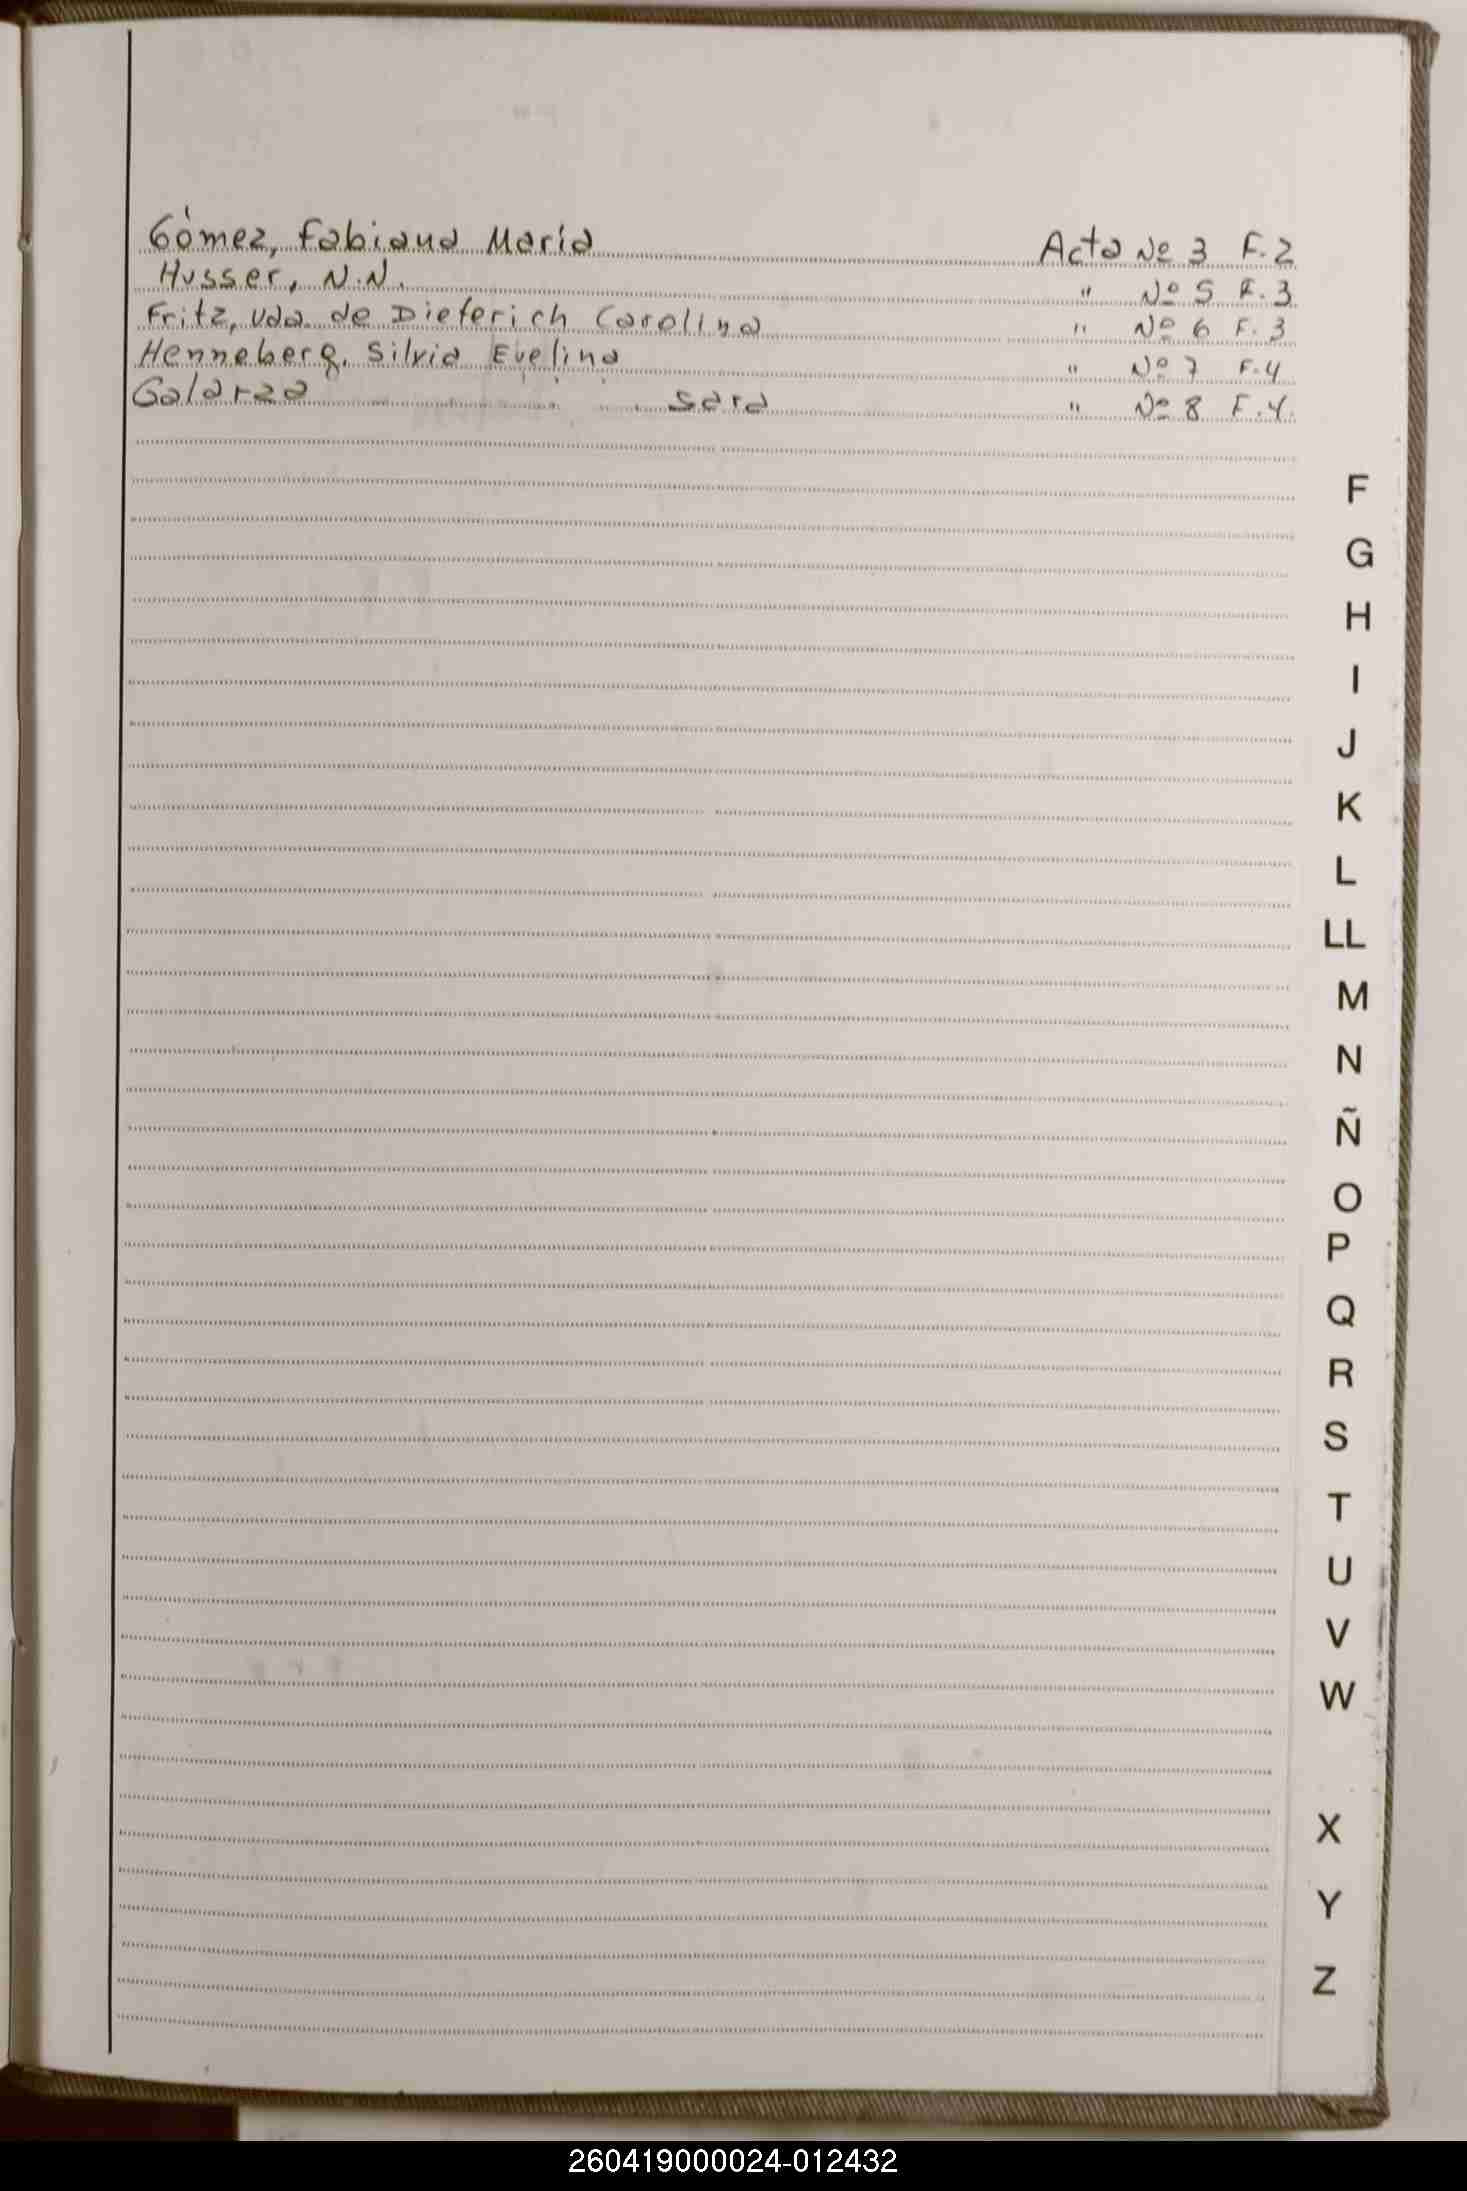 Gómez, Fabiana María Acta Nº 3 F.2
Husser, N.N. " Nº 5 F.3
Fritz, Vda. de Dieterich Carolina " Nº 6 F.3
Henneberg, Silvia Evelina " Nº 7 F.4
Galarza Sara " Nº 8 F.4
F
G
H
I
J
K
L
LL
M
N
Ñ
O
P
Q
R
S
T
U
V
W
X
Y
Z
260419000024-012432